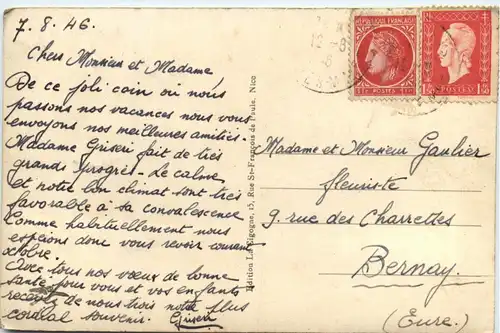 7. 8. 46.
Chers Monsieur et Madame,
De ce joli coin où nous
passons nos vacances nous vous
envoyons nos meilleures amitiés.
Madame Griseri fait de très
grands progrès. Le calme
et notre bon climat sont très
favorable à sa convalescence
Comme habituellement nous
espérons donc vous revoir courant
octobre.
Avec tous nos vœux de bonne
santé pour vous et vos enfants
recevez de nous trois notre plus
cordial souvenir. Griseri
Edition La Cigogne, 15, Rue St-François de Paule, Nice
REPUBLIQUE FRANÇAISE
POSTES
Madame et Monsieur Gaulier
fleuriste
9. rue des Charrettes
Bernay.
(Eure.)